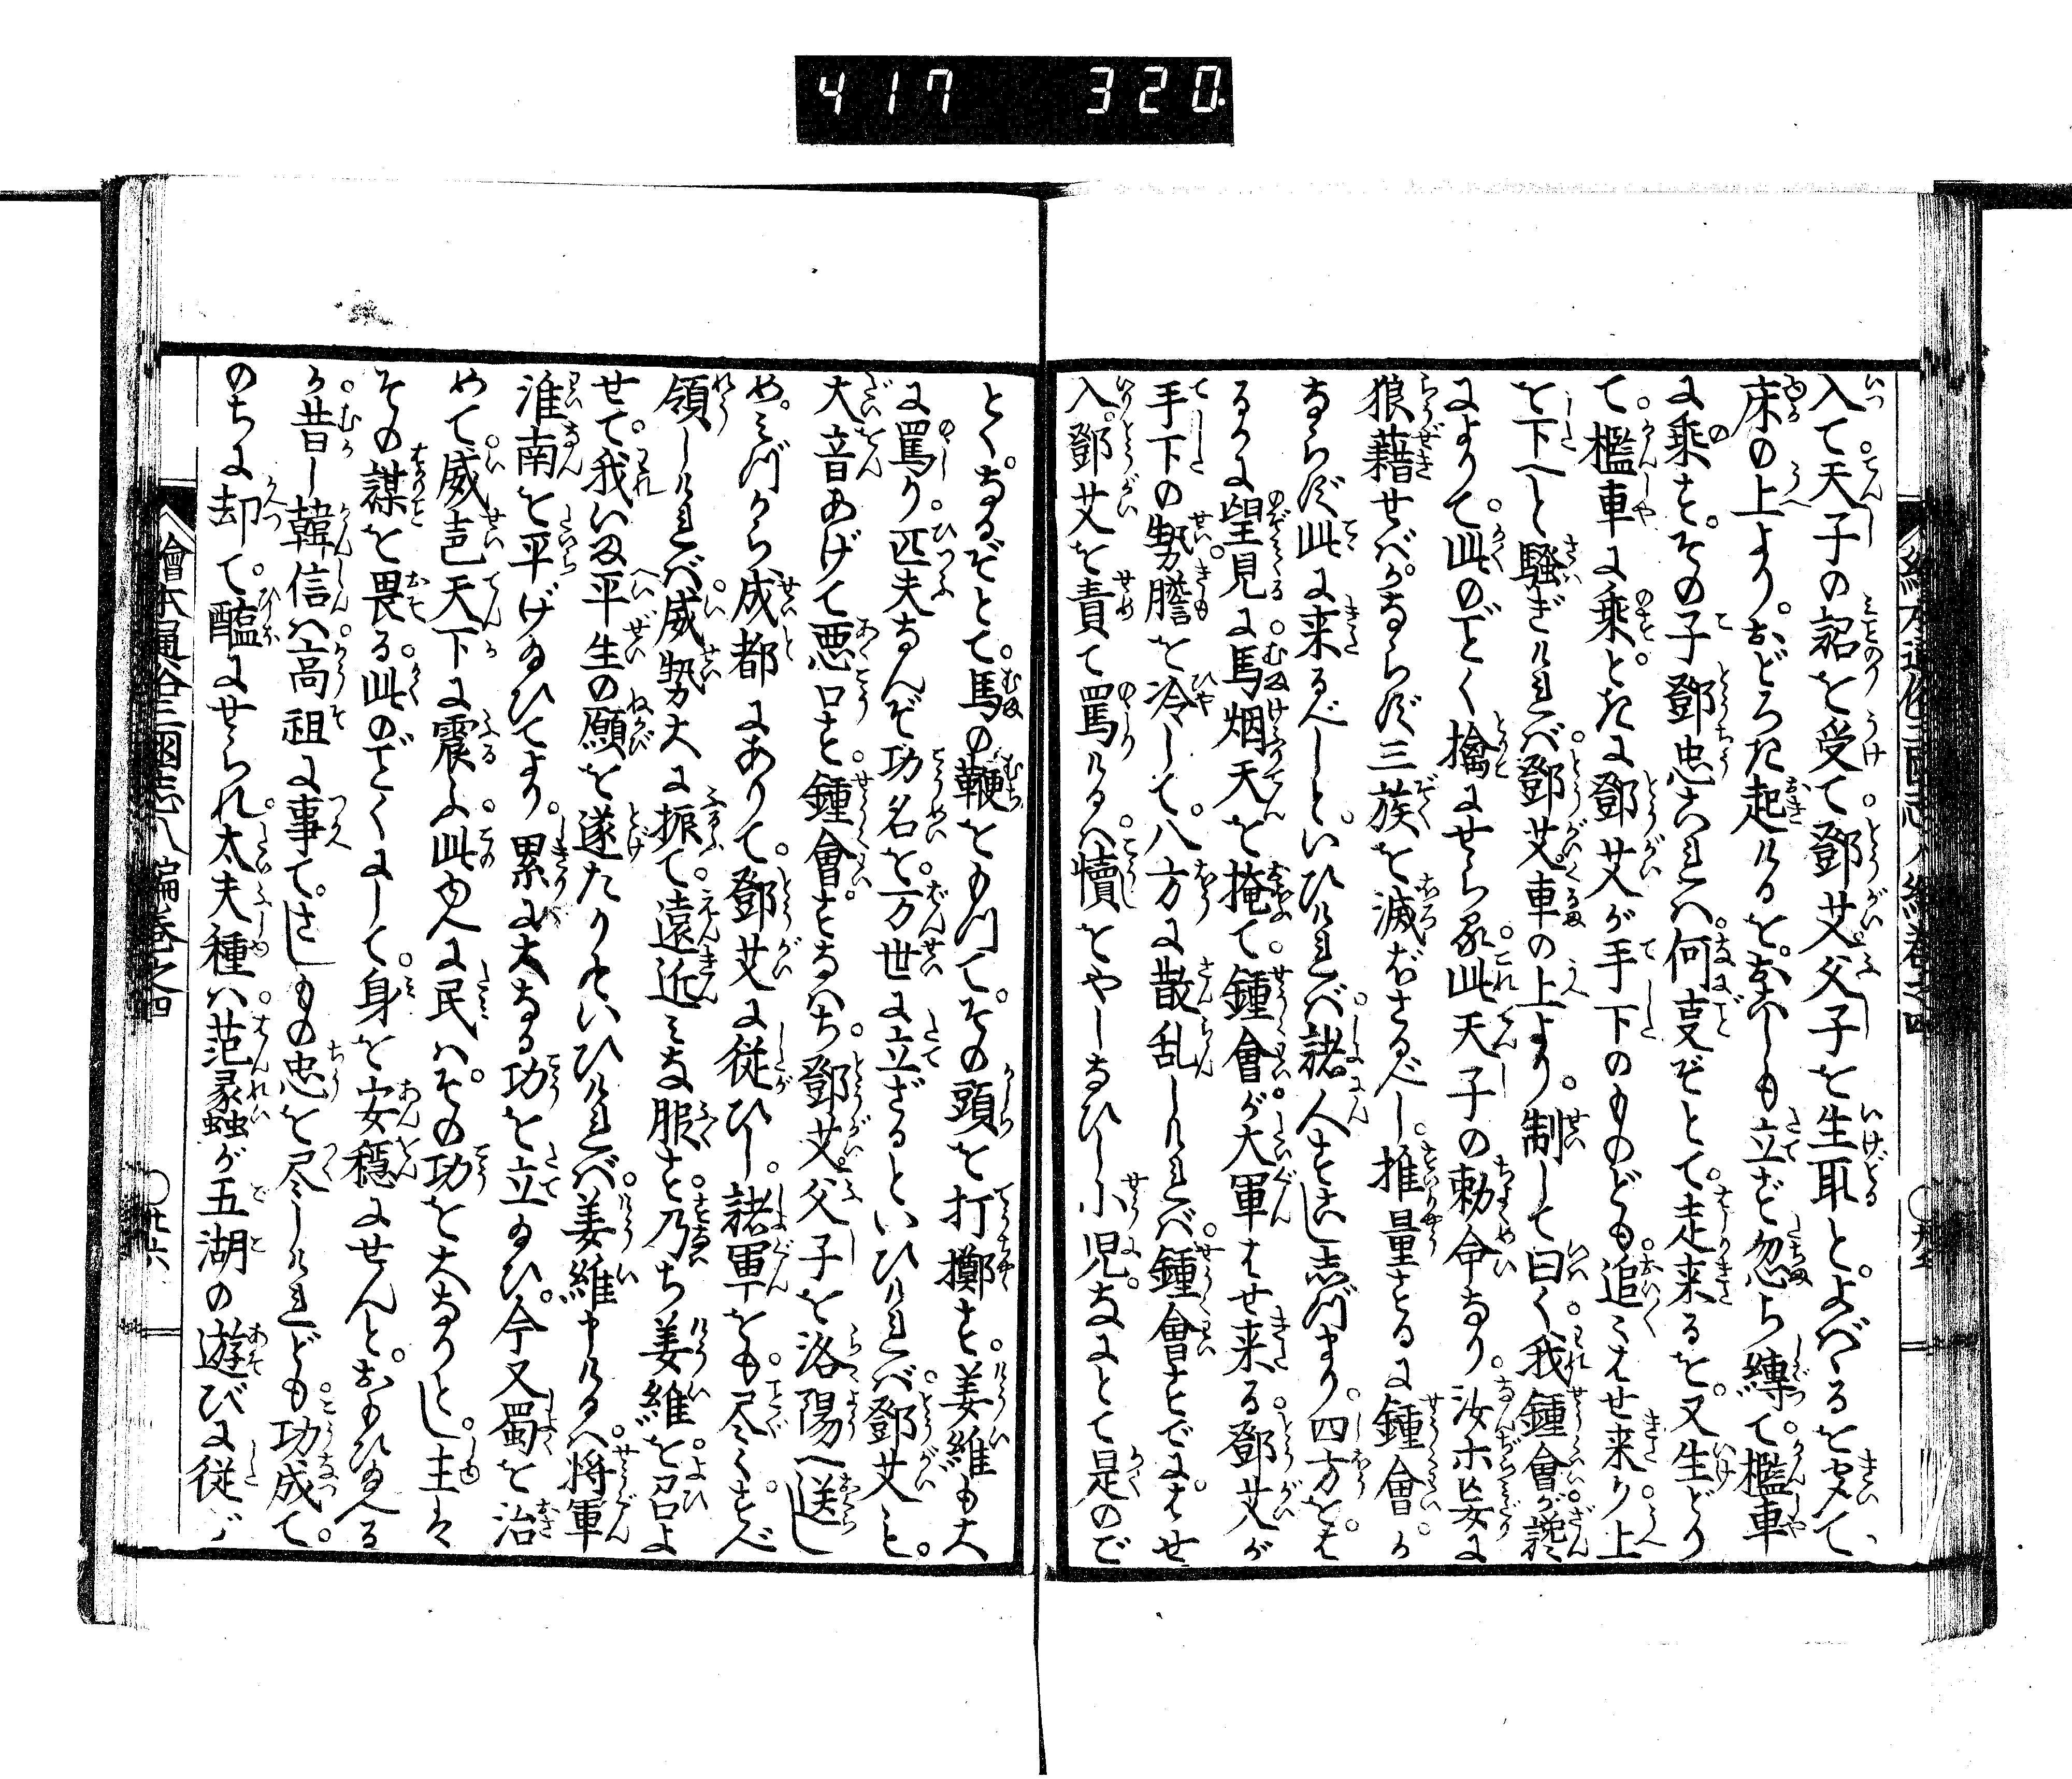 417 320
繪本通俗三國志八編巻之四
入て天子の詔を受て鄧艾父子を生取とよばゝるを聞て
床の上よりおどろき起けるをおゝしも立ず忽ち縛て檻車
に乗すその子鄧忠これハ何事ぞとて走来るを又生どり
て檻車に乗たるに鄧艾が手下のものども追々はせ来り上
を下へと騒ぎければ鄧艾車の上より制して曰く我鍾會が讒
によりて此のごとく擒にせらる此天子の勅命なり汝ホ妄に
狼藉せばかならず三族を滅ぼさるべし推量するに鍾會か
ならず此に来るべしといひければ諸人すこし志づまり四方をは
るかに望見に馬烟天を掩て鍾會が大軍はせ来る鄧艾が
手下の勢膽を冷して八方に散乱しければ鍾會すでにはせ
入鄧艾を責て罵けるハ犢をやしなひし小児なにとて是のご
とくなるぞとて馬の鞭をもつてその頭を打擲す姜維も大
に罵り匹夫なんぞ功名を万世に立ざるといひければ鄧艾も
大音あげて悪口す鍾會すなハち鄧艾父子を洛陽へ送し
めみづから成都にありて鄧艾に従ひし諸軍をも尽くすべ
領しければ威勢大に振て遠近みな服す乃ち姜維を召よ
せて我いま平生の願を遂たりといひければ姜維申けるハ将軍
淮南を平げ玉ひてより累に大なる功を立玉ひ今又蜀を治
めて威㔟天下に震ふ此ゆへに民ハその功を大なりとし主は
その謀を畏る此のごとくにして身を安穏にせんとおもひ玉へる
か昔し韓信ハ高祖に事てさしもの忠を尽しけれども功成て
のちに却て醢にせられ太夫種ハ范蠡が五湖の遊びに従ハ
繪本通俗三國志八編巻之四
〇廿六